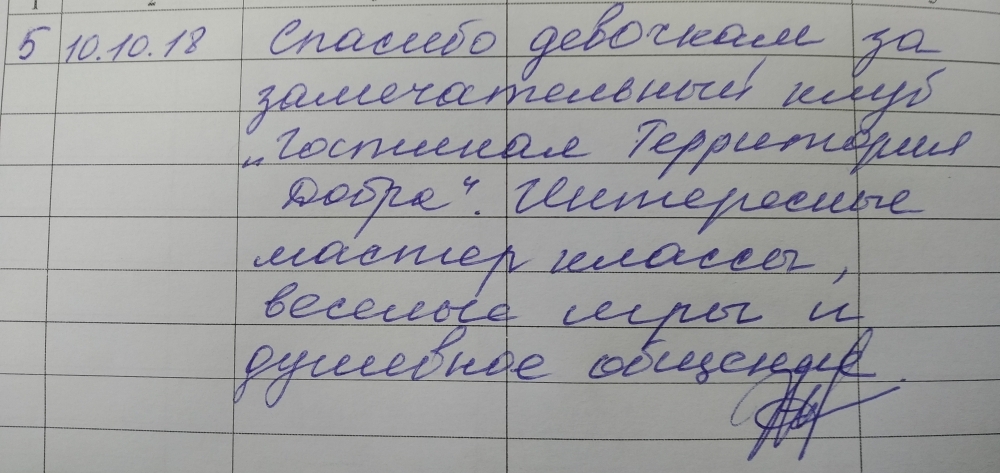 1 2
5 10.10.18 Спасибо девочкам за
замечательный клуб
„Гостиная Территория
Добра“. Интересные
мастер классы,
веселые игры и
душевное общение.